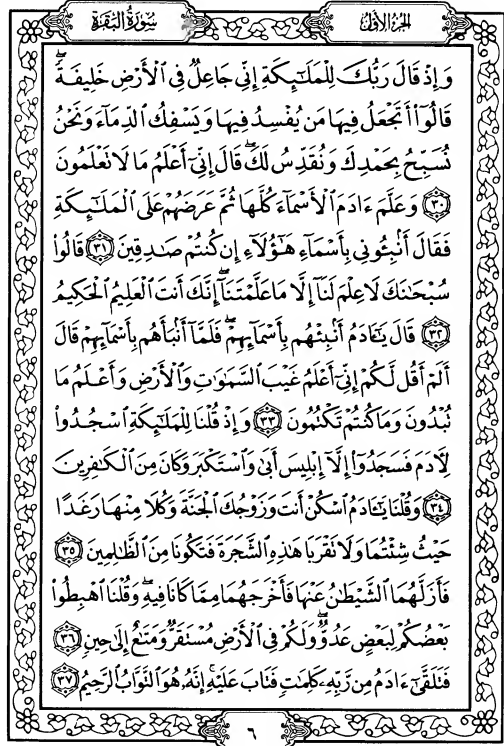 الجزء الأول
سورة البقرة
وَإِذْ قَالَ رَبُّكَ لِلْمَلَٰٓئِكَةِ إِنِّى جَاعِلٌ فِى ٱلْأَرْضِ خَلِيفَةًۖ
قَالُوٓا۟ أَتَجْعَلُ فِيهَا مَن يُفْسِدُ فِيهَا وَيَسْفِكُ ٱلدِّمَآءَ وَنَحْنُ
نُسَبِّحُ بِحَمْدِكَ وَنُقَدِّسُ لَكَۖ قَالَ إِنِّىٓ أَعْلَمُ مَا لَا تَعْلَمُونَ
٣٠ وَعَلَّمَ ءَادَمَ ٱلْأَسْمَآءَ كُلَّهَا ثُمَّ عَرَضَهُمْ عَلَى ٱلْمَلَٰٓئِكَةِ
فَقَالَ أَنۢبِـُٔونِى بِأَسْمَآءِ هَٰٓؤُلَآءِ إِن كُنتُمْ صَٰدِقِينَ ٣١ قَالُوا۟
سُبْحَٰنَكَ لَا عِلْمَ لَنَآ إِلَّا مَا عَلَّمْتَنَآۖ إِنَّكَ أَنتَ ٱلْعَلِيمُ ٱلْحَكِيمُ
٣٢ قَالَ يَٰٓـَٔادَمُ أَنۢبِئْهُم بِأَسْمَآئِهِمْۖ فَلَمَّآ أَنۢبَأَهُم بِأَسْمَآئِهِمْ قَالَ
أَلَمْ أَقُل لَّكُمْ إِنِّىٓ أَعْلَمُ غَيْبَ ٱلسَّمَٰوَٰتِ وَٱلْأَرْضِ وَأَعْلَمُ مَا
تُبْدُونَ وَمَا كُنتُمْ تَكْتُمُونَ ٣٣ وَإِذْ قُلْنَا لِلْمَلَٰٓئِكَةِ ٱسْجُدُوا۟
لِـَٔادَمَ فَسَجَدُوٓا۟ إِلَّآ إِبْلِيسَ أَبَىٰ وَٱسْتَكْبَرَ وَكَانَ مِنَ ٱلْكَٰفِرِينَ
٣٤ وَقُلْنَا يَٰٓـَٔادَمُ ٱسْكُنْ أَنتَ وَزَوْجُكَ ٱلْجَنَّةَ وَكُلَا مِنْهَا رَغَدًا
حَيْثُ شِئْتُمَا وَلَا تَقْرَبَا هَٰذِهِ ٱلشَّجَرَةَ فَتَكُونَا مِنَ ٱلظَّٰلِمِينَ ٣٥
فَأَزَلَّهُمَا ٱلشَّيْطَٰنُ عَنْهَا فَأَخْرَجَهُمَا مِمَّا كَانَا فِيهِۖ وَقُلْنَا ٱهْبِطُوا۟
بَعْضُكُمْ لِبَعْضٍ عَدُوٌّۖ وَلَكُمْ فِى ٱلْأَرْضِ مُسْتَقَرٌّ وَمَتَٰعٌ إِلَىٰ حِينٍ ٣٦
فَتَلَقَّىٰٓ ءَادَمُ مِن رَّبِّهِۦ كَلِمَٰتٍ فَتَابَ عَلَيْهِۚ إِنَّهُۥ هُوَ ٱلتَّوَّابُ ٱلرَّحِيمُ ٣٧
٦